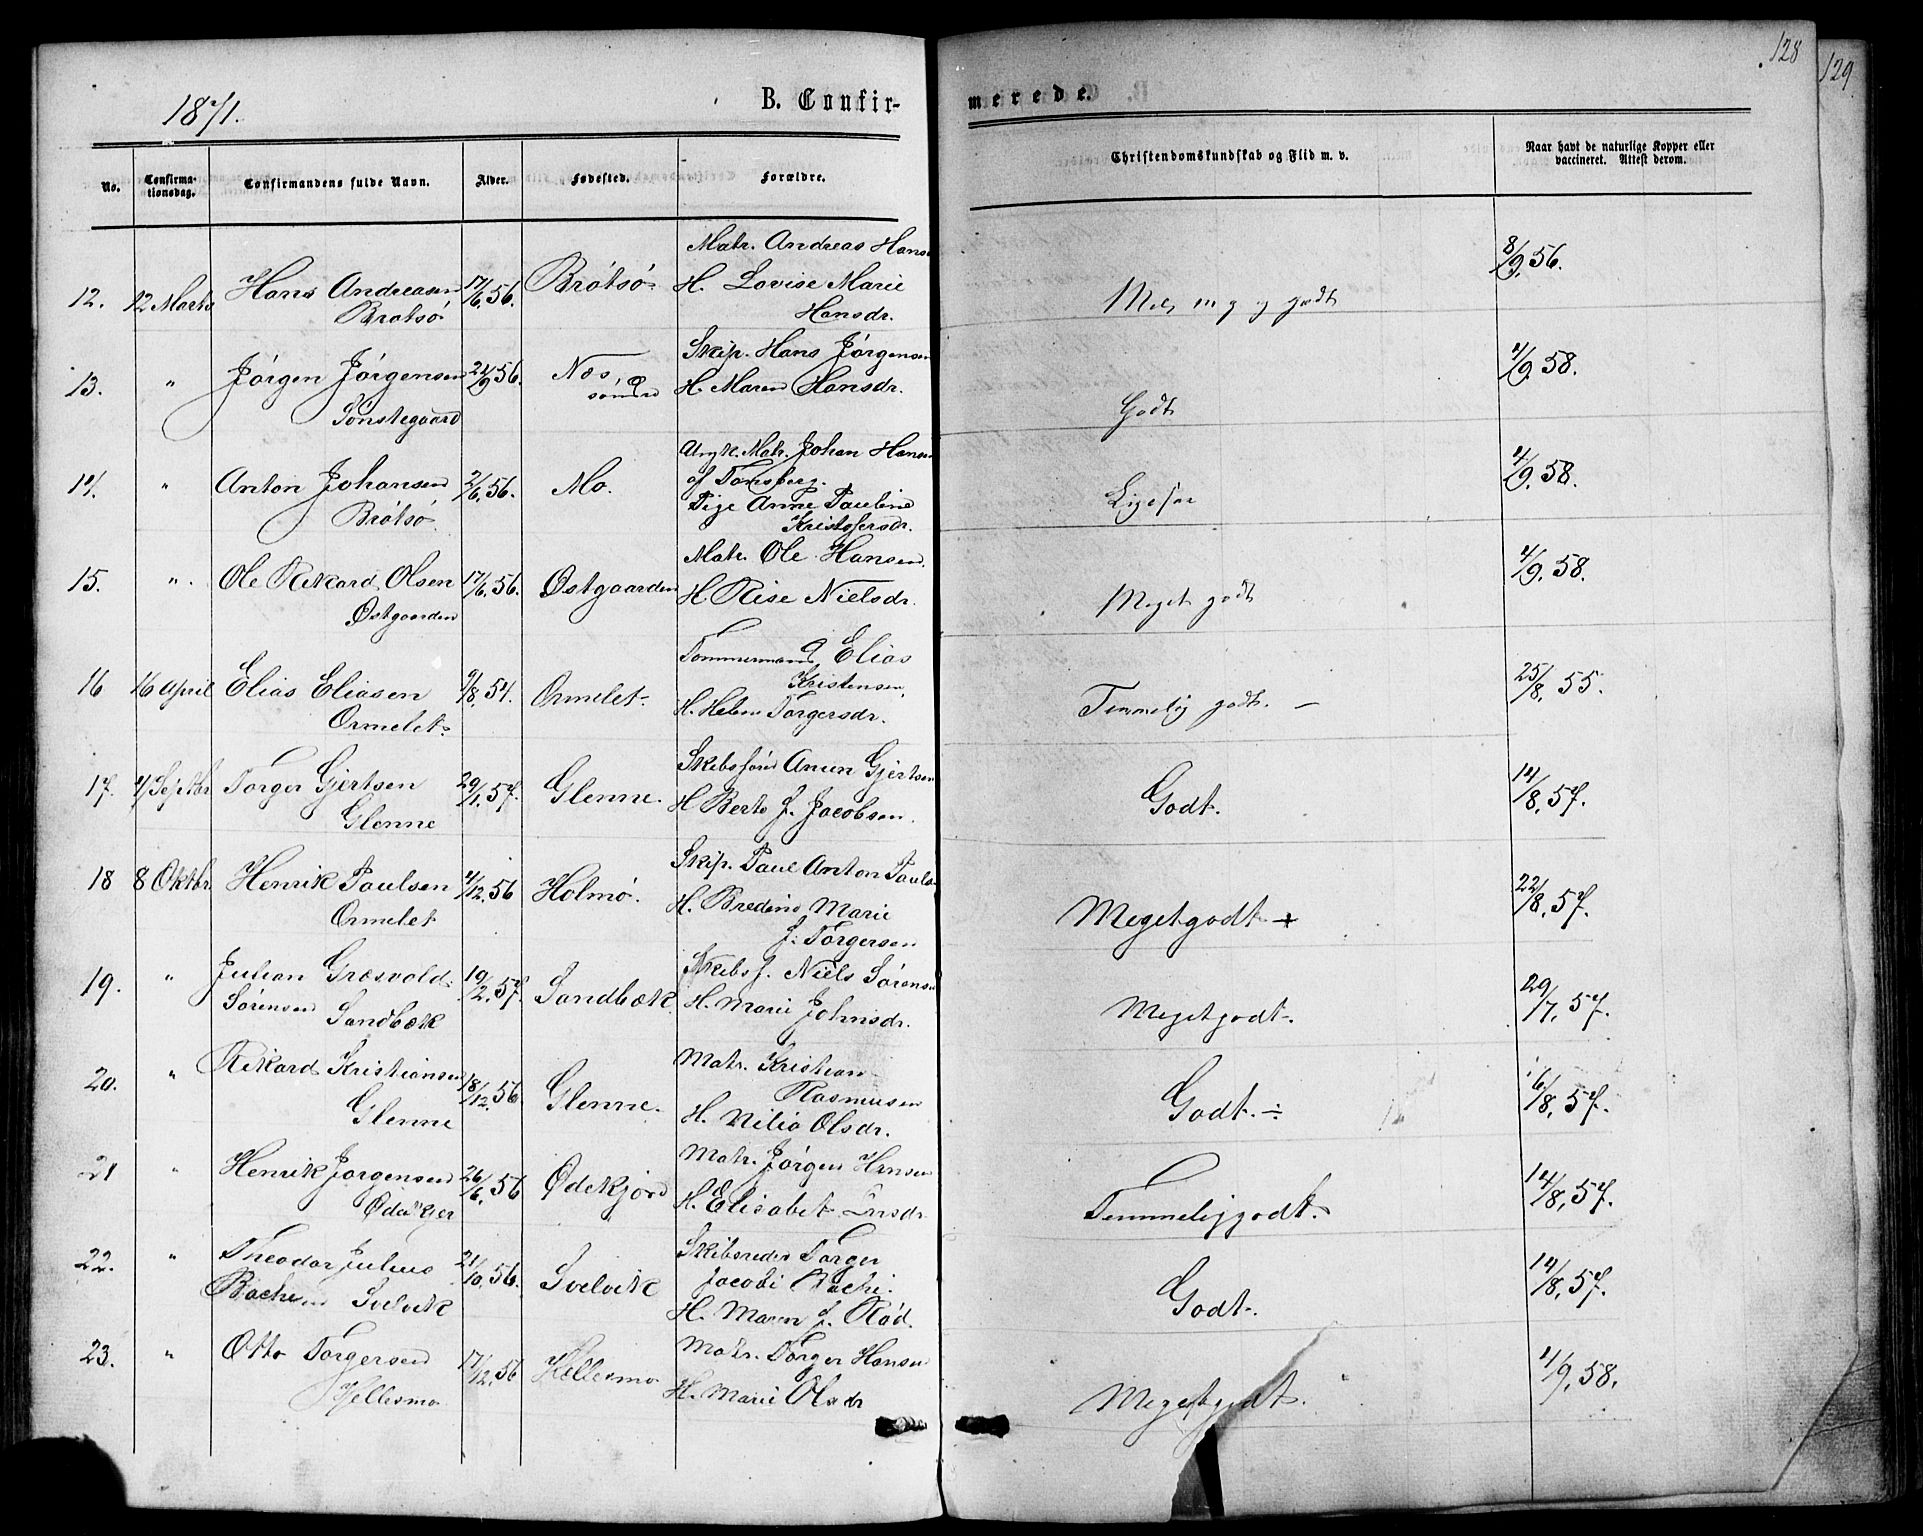 128
129
1871.
B. Confir-
merede.
No.
Confirma-
tionsdag.
Confirmandens fulde Navn.
Alder.
Fødested.
Forældre.
Christendomskundskab og Flid m. v.
Naar havt de naturlige Kopper eller
vaccineret. Attest derom.
12. 12 Marts Hans Andreasen 17/6. 56. Brøtsø Matr. Andreas Hans
Brøtsø H. Lovise Marie
Hansdr. 8/9. 56.
13. " Jörgen Jörgensen 21/9 56. Næs Skip. Hans Jörgensen
Sönstegaard H. Maren Hansdr. Godt 4/9. 58.
14. " Anton Johansen 2/6. 56. Mo. Ungk. Matr. Johan Hansen
Brøtsø af Tønsberg.
Pige Anne Pauline
Kristofersdr. Ligesaa 4/9. 58.
15. " Ole Rikard Olsen 17/6. 56. Østgaarden Matr. Ole Hansen.
Østgaarden H. Rise Nielsdr. Meget godt 4/9. 58.
16 16 April Elias Eliasen 9/8. 54. Ormelet Tømmermand Elias
Kristensen,
Ormelet H. Helene Torgersdr. Temmelig godt. 25/8. 55.
17. 4/Septbr Torger Gjertsen 29/1. 57. Glenne. Skibsförer Anun Gjertsen
Glenne H. Berte f. Jacobsen. Godt. 14/8. 57.
18 8 Oktbr. Henrik Paulsen 4/12. 56 Holmö. Skip. Paul Anton Pauls
Ormelet H. Bredine Marie
f. Torgersen Meget godt + 22/8. 57.
19. " Julian Græsvold 19/2. 57. Sandbæk Skibsf. Niels Sörens
Sörensen
Sandbæk H. Marie Johnsdr. Meget godt. 29/7. 57.
20. " Rikard Kristiansen 18/12. 56 Glenne. Matr. Kristian
Rasmussen
Glenne H. Nilia Olsdr. Godt. ÷ 16/8. 57.
21 " Henrik Jörgensen 26/6. 56 Ødekjær Matr. Jörgen Hansen
H. Elisabet Temmelig godt. 14/8. 57.
22. " Theodor Julius 21/10. 56. Svelvik Skibsreder Torger
Jacobi Bache.
Bache Svelvik H. Maren f. Röd. Godt. 14/8. 57.
23. " Otto Torgersen 17/12. 56 Hellesmo Matr. Torger Hansen
Hellesmo H. Marie Olsdr Meget godt. 4/9. 58.